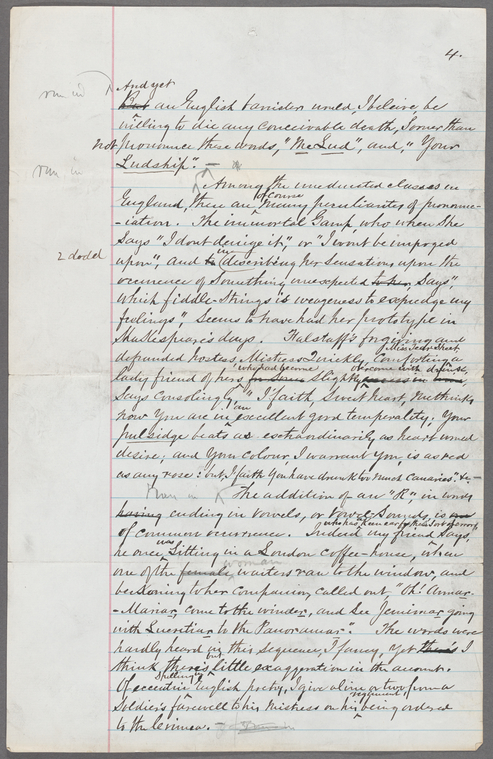 4.
And yet
run in
But an English barrister would, I beleive be
willing to die any conceivable death, sooner than
not pronounce these words, "Me Lud", and, "Your
Ludship". —
run in
Among the uneducated classes in
England, there are of course many peculiarities of pronunc-
-iation. The immortal Gamp who when she
Says "I dont denige it", or "I wont be impoged
2 dodel
upon", and in describing her sensations upon the
occurrence of something unexpected to her, says",
which fiddle-strings is weageness to expredge my
feelings", seems to have had her prototype in
Shakespeares days. Falstaff's forgiving and
defrauded hostess, Mistress Quickly, comforting a
Miss Tearsheet
lady friend of hers who had become slightly overcome with drink,
Says consolingly, "I faith, Sweet heart, methinks
now you are in an excellent good temperality; Your
pulsidge beats as extraordinarily as heart would
desire; and your colour, I warrant you, is as red
as any rose: but, I faith you have drunk too much canaries." &c—
Run in
The addition of an "R" in words
having ending in vowels, or vowel-sounds, is
of common occurrence. Indeed my friend says,
he once was sitting in a London coffee-house, when
woman
one of the female waiters ran to the window, and
beckoning to her companion, called out, "Oh! Annar-
-Mariar, come to the winder, and see Jemimar going
with Lucretiar to the Panoramar". The words were
hardly heard in this sequence, I fancy, yet this I
think there is but little exaggeration in the account.
Of eccentric spelling English poetry, I give a line or two from a
Soldier's farewell to his Mistress on his regiment being ordered
to the Crimea. —